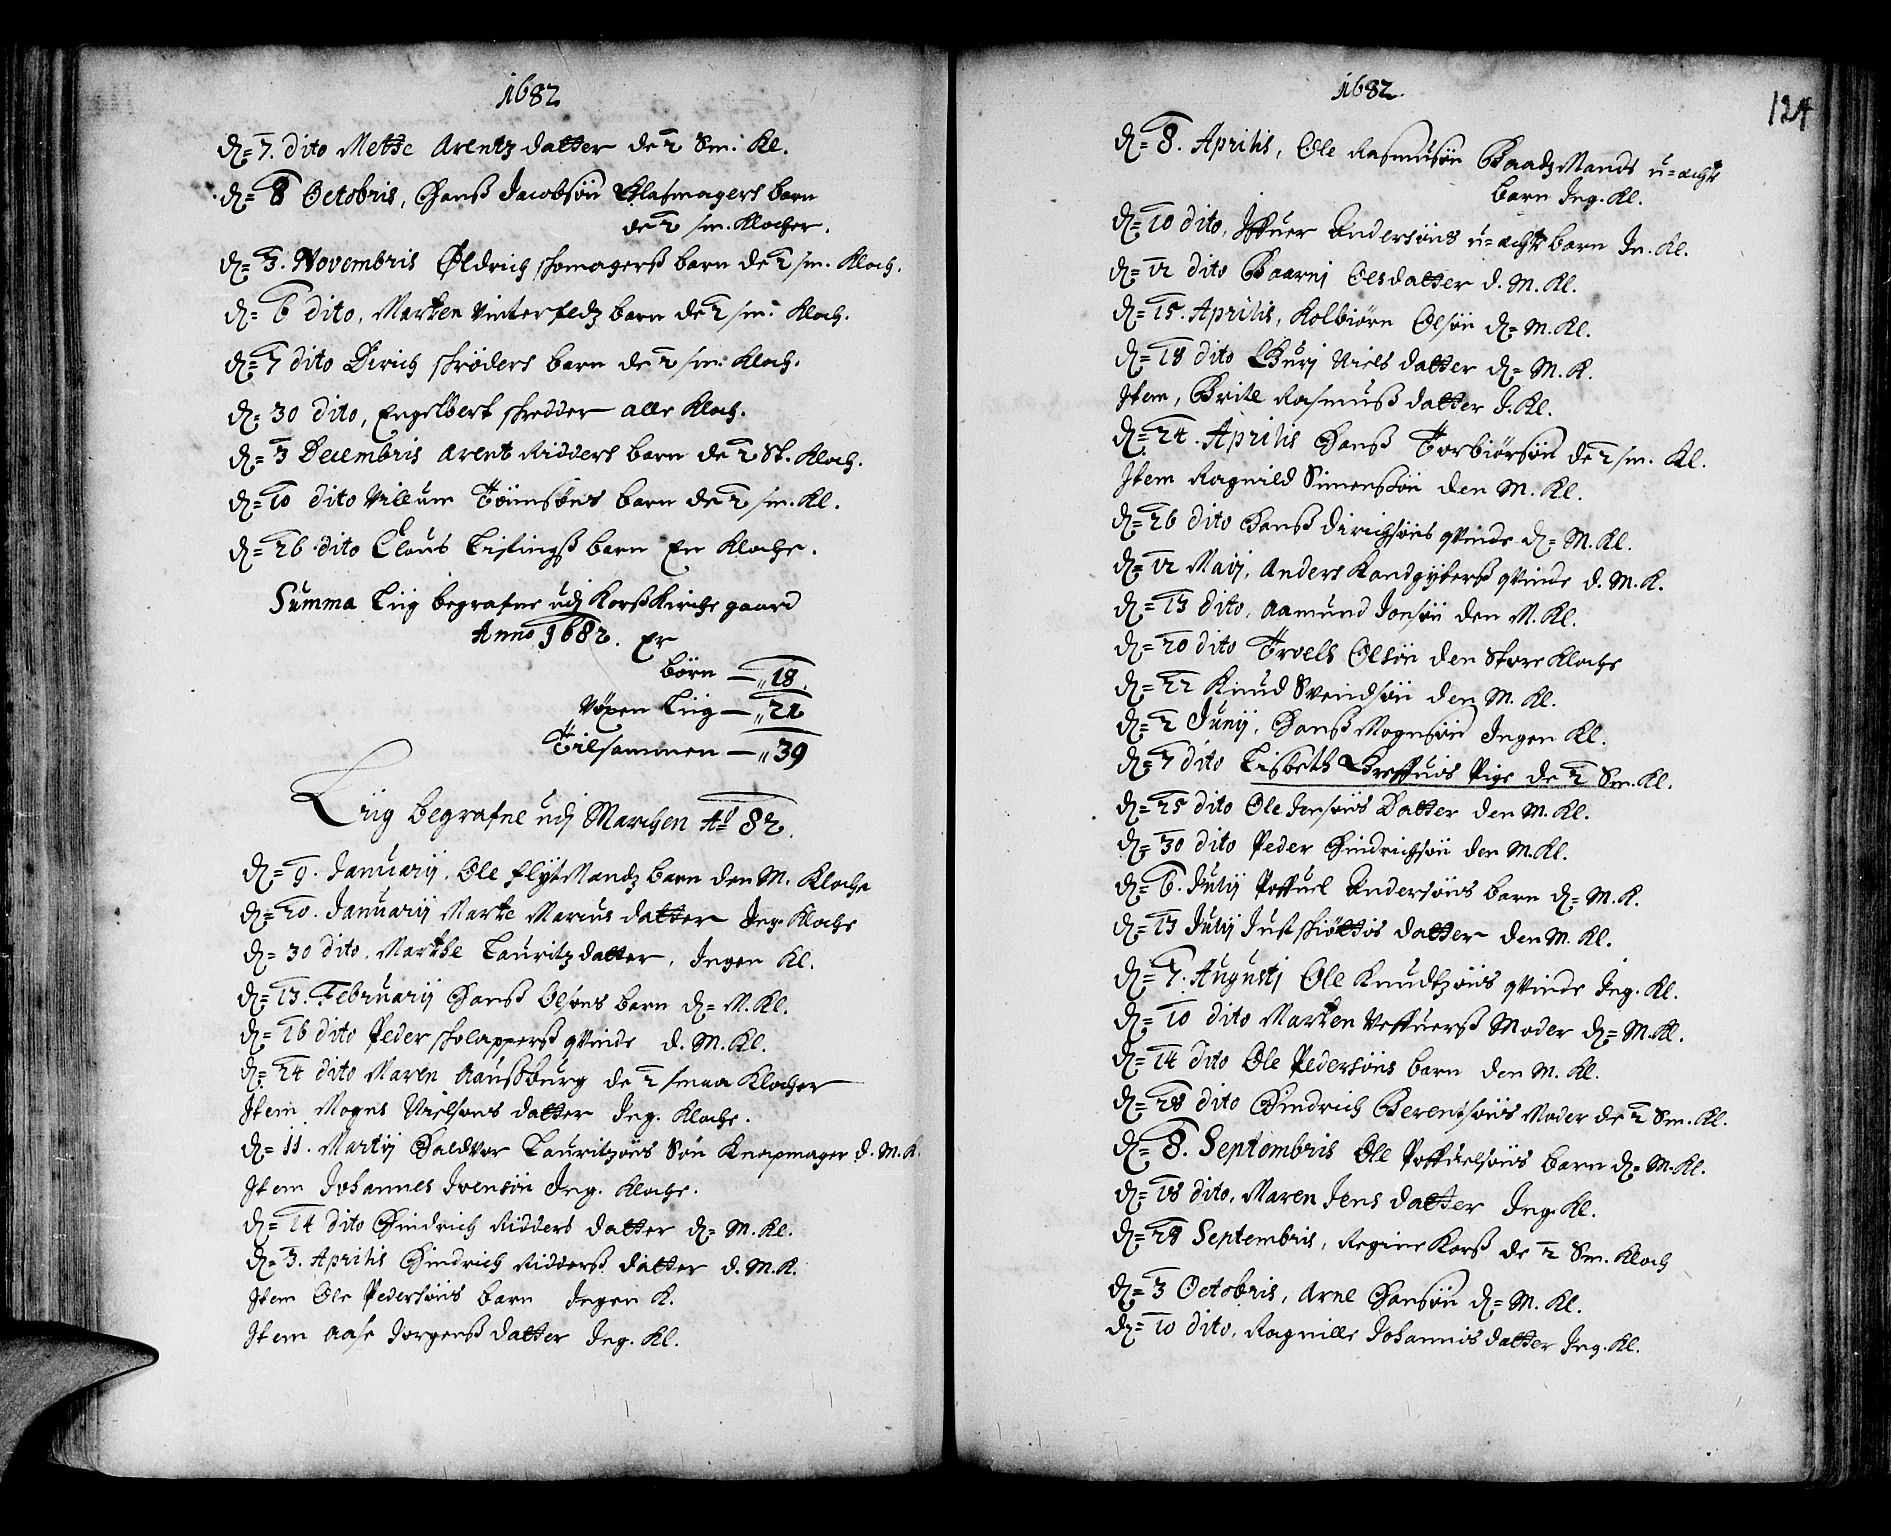 1682
D= 7. dito Mette Arentz datter de 2 Sm. Kl.
D= 8 Octobris, Hanß Jacobsøn Glasmagers barn
de 2 sm. Klocher.
D= 3. Novembris Øldrich skomagerß barn de 2 sm. Kloch.
D= 6 dito, Marken Vinterfeldz barn de 2 sm. Kloch.
D= 7 dito Dirich skrøders barn de 2 sm. Kloch.
D= 30 dito, Engelbert skredder alle Kloch.
D= 3 Decembris Arent Ridders barn de 2 St. Kloch.
D= 10 dito Villum Tømsøns barn de 2 sm. Kl.
D= 26 dito Claus Listingß barn En Kloche.
Summa Liig begrafne udj Korß Kirche gaard
Anno 1682. Er
børn — 18.
Voxen Liig — 21
Tilsammen — 39
Liig begrafne udj Marchen Aº 82.
D= 9. Januarij, Ole flytMandz barn den M. Kloche
D= 20. Januarij Marte Marcus datter Ing. Kloche
D= 30 dito, Marthe Lauritz datter, Ingen Kl.
D= 13. Februarij Hanß Olsøns barn D= M. Kl.
D= 16 dito Peder skolapperß qvinde d. M. Kl.
D= 24 dito Maren Aausburg de 2 smaa Klocher
Item Mogns Nielsøns datter Ing. Kloche.
D= 11. Martij Haldvor Lauritzøns Søn Knapmager d. M. K.
Item Johannes Ivensøn Ing. Kloche.
D= 14 dito Hindrich Ridders datter D= M. Kl.
D= 3. Aprilis Hindrich Ridderß datter d. M. K.
Item Ole Pedersøns barn Ingen K.
Item Aase Jorgenß datter Ing. Kl.
1682.
124
D= 8. Aprilis, Ole Rasmusøn BaadzMands u=ægte
barn Ing. Kl.
D= 10 dito, Iffuer Andersøns u=ægte barn In. Kl.
D= 12 dito Baarnj Olsdatter d. M. Kl.
D= 15. Aprilis, Kolbiørn Olsøn D= M. Kl.
D= 18 dito Gurj Niels datter D= M. K.
Item, Brite Rasmuß datter I. Kl.
D= 24. Aprilis Hanß Torbiørsøn de 2 sm. Kl.
Item Ragnild Simenssøn den M. Kl.
D= 26 dito Hanß Dirichsøns qvinde D= M. Kl.
D= 12 Maij, Anders Kandgyterß qvinde d. M. K.
D= 13 dito, Aamund Jonsøn den M. Kl.
D= 20 dito Troels Olsøn den Store Kloche
D= 22 Knud Svendsøn den M. Kl.
D= 2 Junij, Hanß Mognsøn Ingen Kl.
D= 7 dito Lisbeth Greffues Pige de 2 Sm. Kl.
D= 25 dito Ole Jensøns Datter den M. Kl.
D= 30 dito Peder Hindrichsøn den M. Kl.
D= 6. Julij Poffuel Andersøns barn D= M. K.
D= 13 Julij Just skiøttes datter den M. Kl.
D= 7. Augustj Ole Knudtzøns qvinde Ing. Kl.
D= 10 dito Marten Veffuerß Moder D= M. Kl.
D= 14 dito Ole Pedersøns barn den M. Kl.
D= 28 dito Hindrich Berentsøns Moder de 2 Sm. Kl.
D= 8. Septembris Ole Poffuelsøns barn D= M. Kl.
D= 18 dito, Maren Jens datter Ing. Kl.
D= 28 Septembris, Regine Korß de 2 Sm. Kloch
D= 3 Octobris, Arne Hansøn D= M. Kl.
D= 10 dito, Ragnille Johannis datter Ing. Kl.